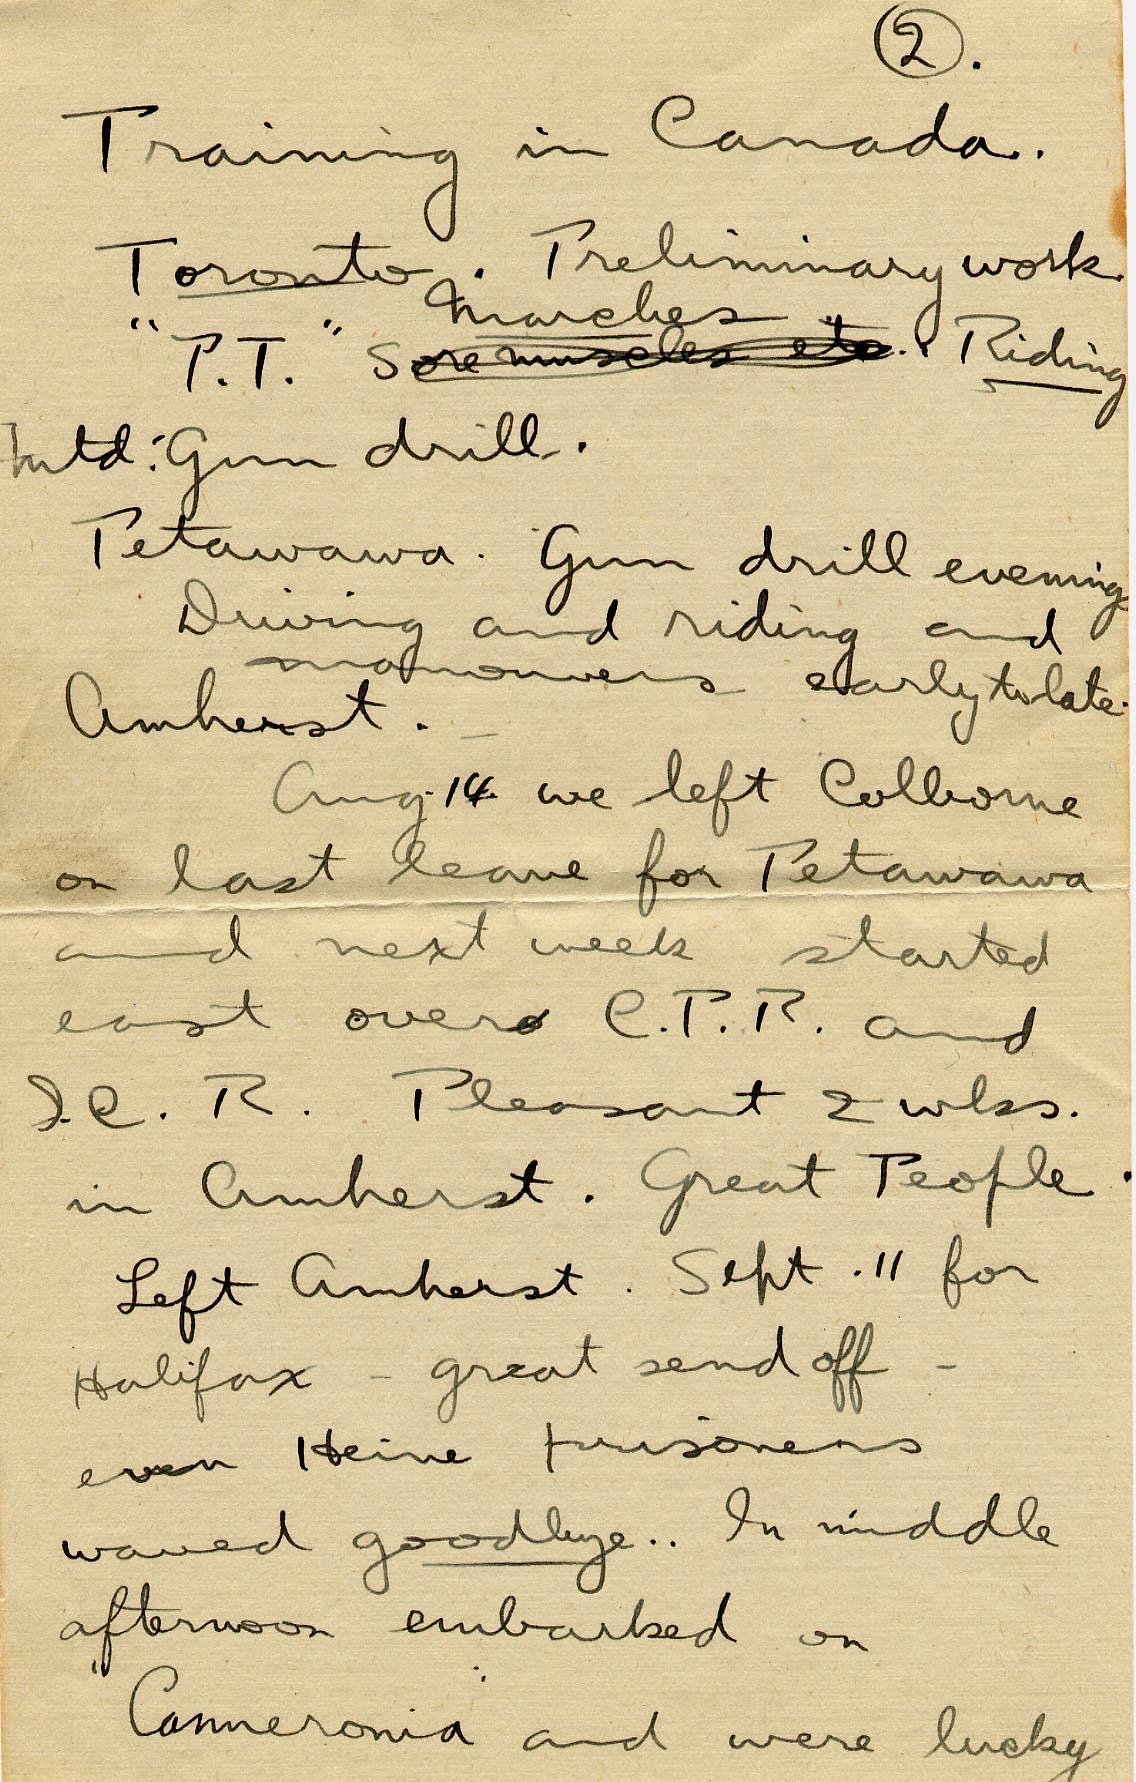 2.
Training in Canada.
Toronto. Preliminary work
Marches
"P.T." Sore muscles etc.. Riding
Gun drill.
Petawawa. Gun drill evening
Driving and riding and
manouvers early to late.
Amherst.
Aug. 14 we left Colborne
on last leave for Petawawa
and next week started
east over C.P.R. and
I.C.R. Pleasant 2 wks.
in Amherst. Great People.
Left Amherst. Sept. 11 for
Halifax - great send off -
even Heine prisoners
waved goodbye.. In middle
afternoon embarked on
"Cameronia" and were lucky